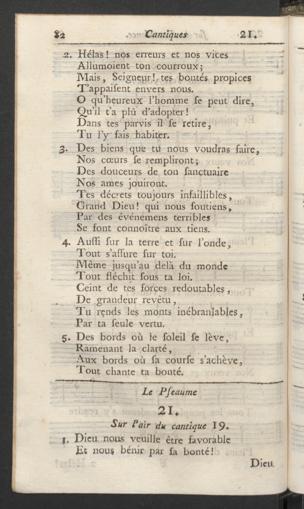 82 Cantiques 21.
2. Hélas! nos erreurs et nos vices
Allumoient ton courroux;
Mais, Seigneur! tes boutés propices
T'appaisent envers nous.
O qu'heureux l'homme se peut dire,
Qu'il t'a plû d'adopter!
Dans tes parvis il se retire,
Tu l'y fais habiter.
3. Des biens que tu nous voudras faire,
Nos cœurs se rempliront;
Des douceurs de ton sanctuaire
Nos ames jouiront.
Tes décrets toujours infaillibles,
Grand Dieu! qui nous soutiens,
Par des événemens terribles
Se font connoître aux tiens.
4. Aussi sur la terre et sur l'onde,
Tout s'assure sur toi.
Même jusqu'au delà du monde
Tout fléchit sous ta loi.
Ceint de tes forces redoutables,
De grandeur revêtu,
Tu rends les monts inébranlables,
Par ta seule vertu.
5. Des bords où le soleil se lève,
Ramenant la clarté,
Aux bords où sa course s'achève,
Tout chante ta bonté.
Le Pseaume
21.
Sur l'air du cantique 19.
1. Dieu nous veuille être favorable
Et nous bénir par sa bonté!
Dieu